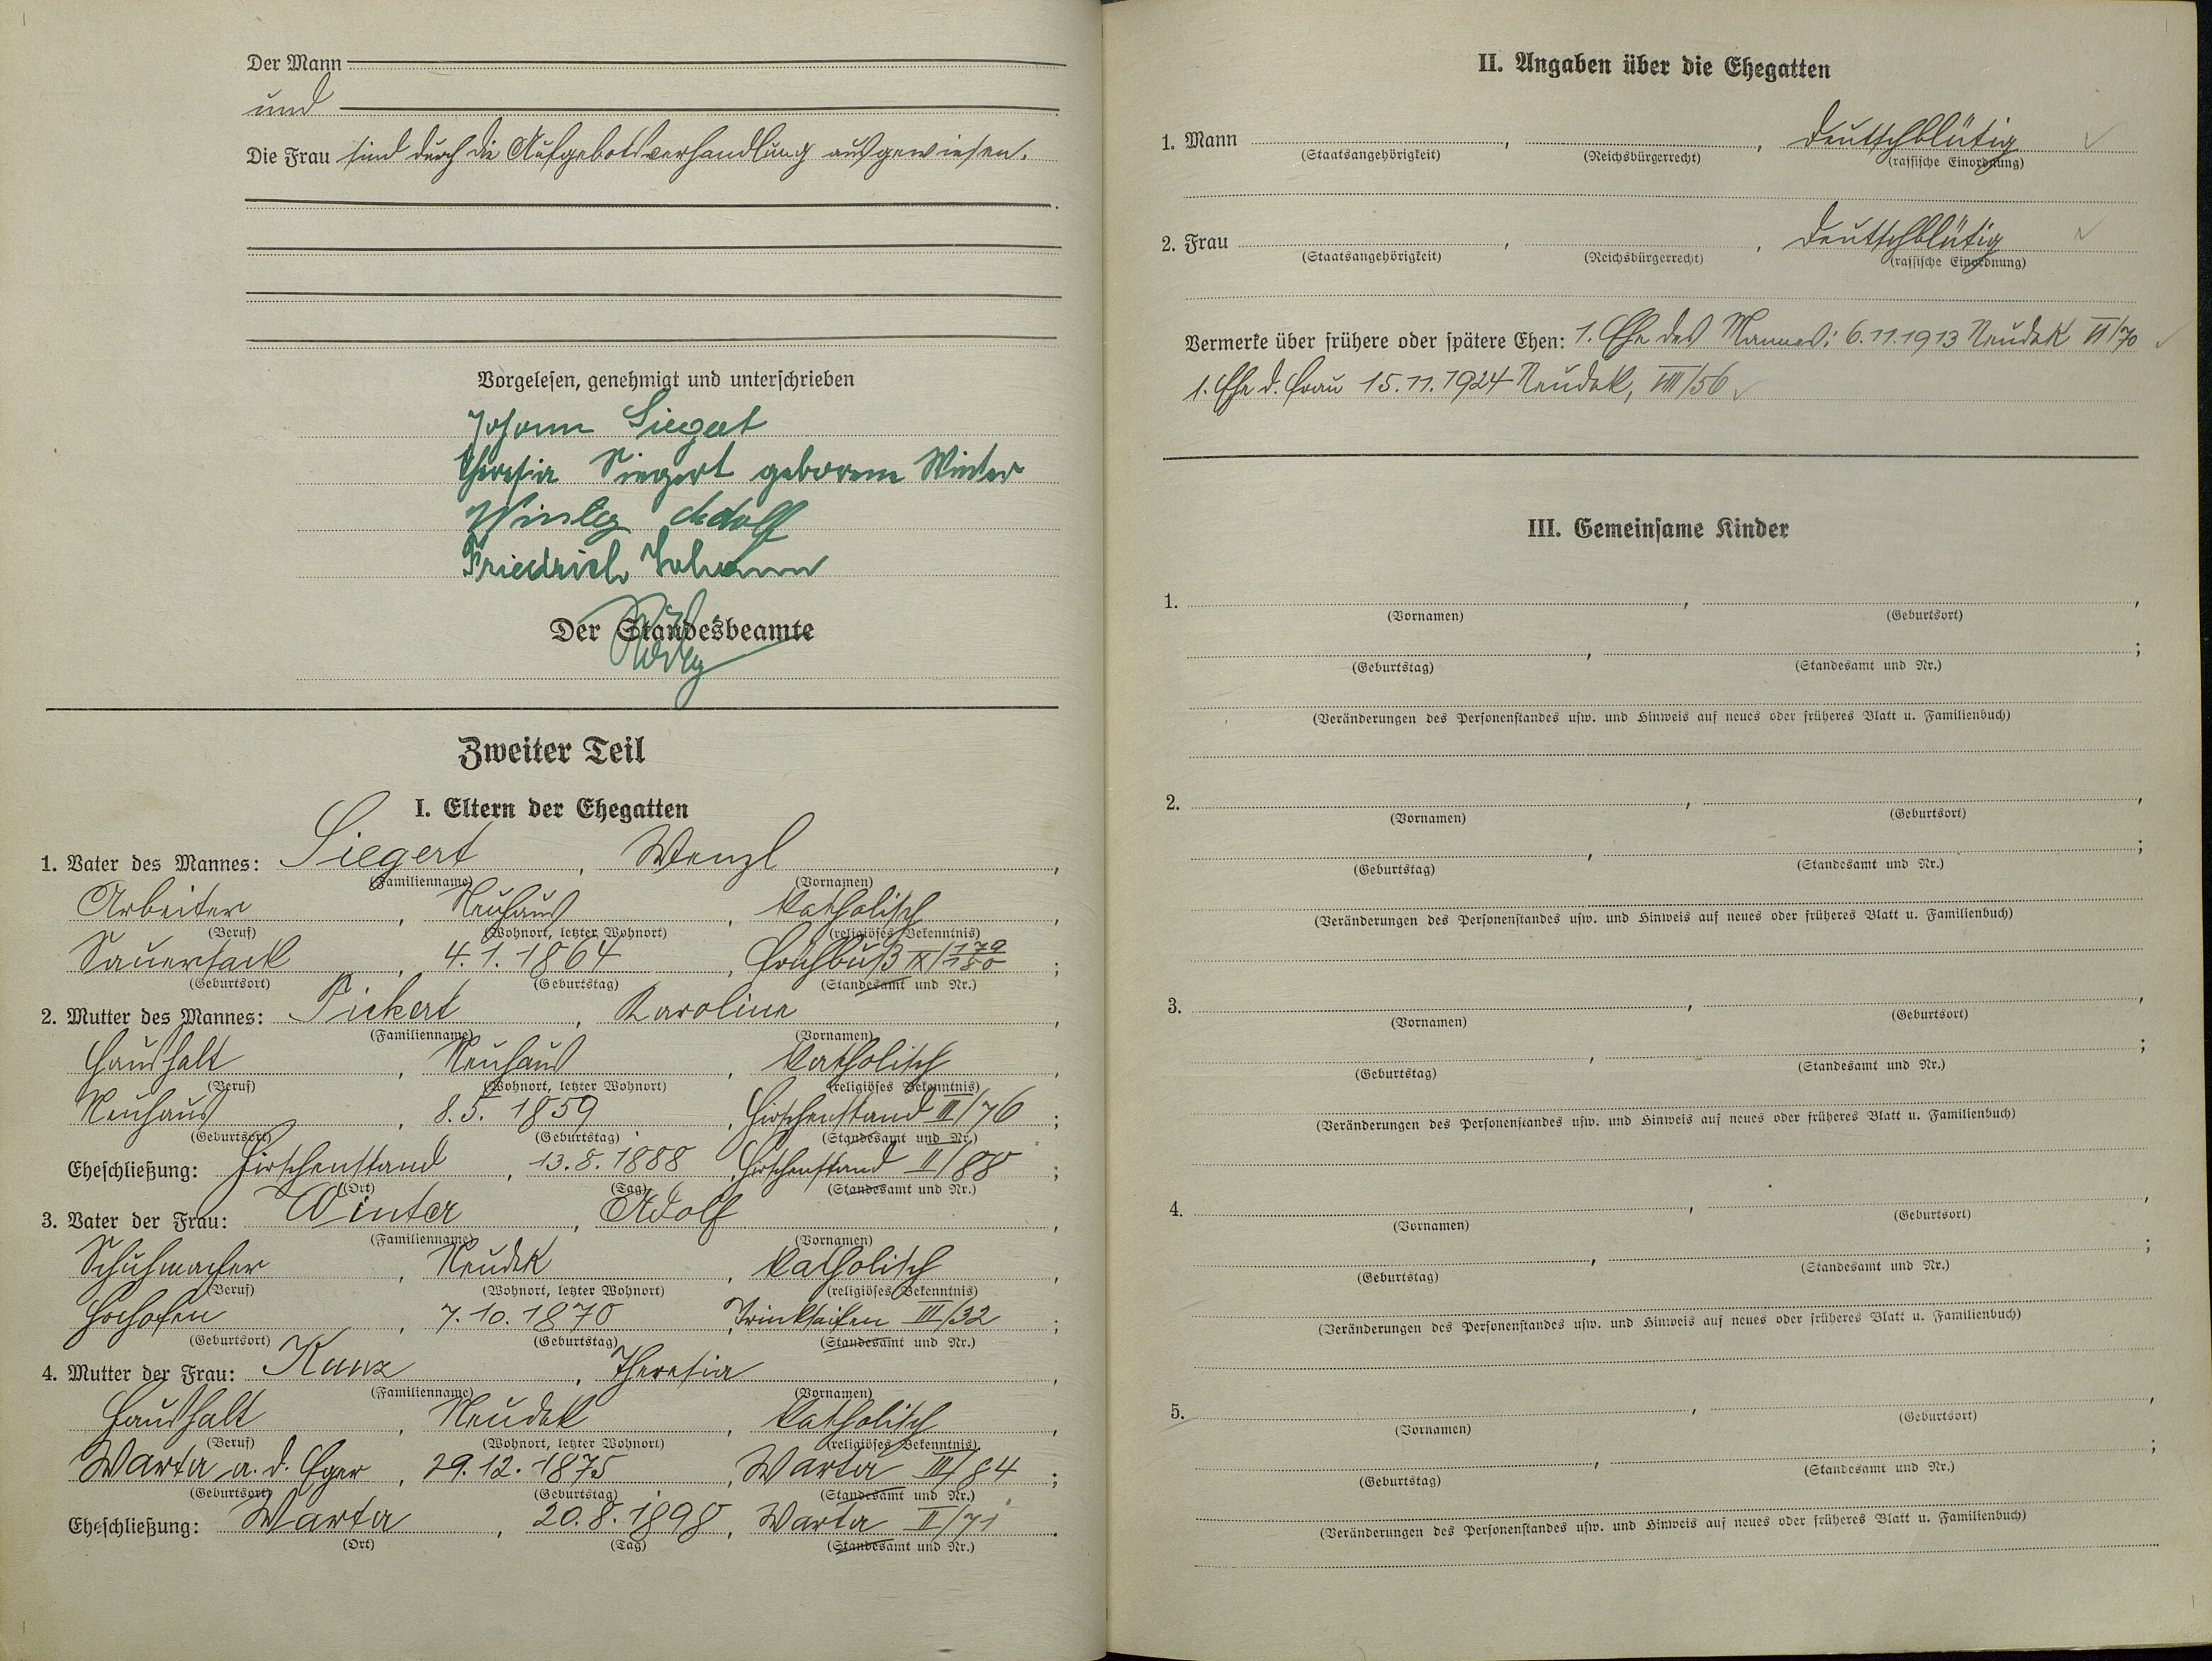 Der Mann
und
Die Frau sind durch die Aufgebotsverhandlung ausgewiesen.
Vorgelesen, genehmigt und unterschrieben
Johann Siegert
Theresia Siegert geborene Winter
Winter Adolf
Friedrich Johann
Der Standesbeamte
Zweiter Teil
I. Eltern der Ehegatten
1. Vater des Mannes: Siegert, Wenzl,
(Familienname) (Vornamen)
Arbeiter, Neuhaus, katholisch,
(Beruf) (Wohnort, letzter Wohnort) (religiöses Bekenntnis)
Sauersack, 4.1.1864, Frühbuß IX/179/180;
(Geburtsort) (Geburtstag) (Standesamt und Nr.)
2. Mutter des Mannes: Pickert, Karolina,
(Familienname) (Vornamen)
Haushalt, Neuhaus, katholisch,
(Beruf) (Wohnort, letzter Wohnort) (religiöses Bekenntnis)
Neuhaus, 8.5.1859, Hirschenstand III/76;
(Geburtsort) (Geburtstag) (Standesamt und Nr.)
Eheschließung: Hirschenstand, 13.8.1888, Hirschenstand II/88;
(Ort) (Tag) (Standesamt und Nr.)
3. Vater der Frau: Winter, Adolf,
(Familienname) (Vornamen)
Schuhmacher, Neudek, katholisch,
(Beruf) (Wohnort, letzter Wohnort) (religiöses Bekenntnis)
Hochofen, 7.10.1870, Trinkseifen III/32;
(Geburtsort) (Geburtstag) (Standesamt und Nr.)
4. Mutter der Frau: Kunz, Theresia,
(Familienname) (Vornamen)
Haushalt, Neudek, katholisch,
(Beruf) (Wohnort, letzter Wohnort) (religiöses Bekenntnis)
Warta a. d. Eger, 29.12.1875, Warta III/84;
(Geburtsort) (Geburtstag) (Standesamt und Nr.)
Eheschließung: Warta, 20.8.1898, Warta II/71.
(Ort) (Tag) (Standesamt und Nr.)
II. Angaben über die Ehegatten
1. Mann , , deutschblütig
(Staatsangehörigkeit) (Reichsbürgerrecht) (rassische Einordnung)
2. Frau , , deutschblütig
(Staatsangehörigkeit) (Reichsbürgerrecht) (rassische Einordnung)
Vermerke über frühere oder spätere Ehen: 1. Ehe des Mannes: 6.11.1913 Neudek VI/70
1. Ehe d. Frau 15.11.1924 Neudek, VIII/56
III. Gemeinsame Kinder
1. , ,
(Vornamen) (Geburtsort)
, ;
(Geburtstag) (Standesamt und Nr.)
(Veränderungen des Personenstandes usw. und Hinweis auf neues oder früheres Blatt u. Familienbuch)
2. , ,
(Vornamen) (Geburtsort)
, ;
(Geburtstag) (Standesamt und Nr.)
(Veränderungen des Personenstandes usw. und Hinweis auf neues oder früheres Blatt u. Familienbuch)
3. , ,
(Vornamen) (Geburtsort)
, ;
(Geburtstag) (Standesamt und Nr.)
(Veränderungen des Personenstandes usw. und Hinweis auf neues oder früheres Blatt u. Familienbuch)
4. , ,
(Vornamen) (Geburtsort)
, ;
(Geburtstag) (Standesamt und Nr.)
(Veränderungen des Personenstandes usw. und Hinweis auf neues oder früheres Blatt u. Familienbuch)
5. , ,
(Vornamen) (Geburtsort)
, ;
(Geburtstag) (Standesamt und Nr.)
(Veränderungen des Personenstandes usw. und Hinweis auf neues oder früheres Blatt u. Familienbuch)